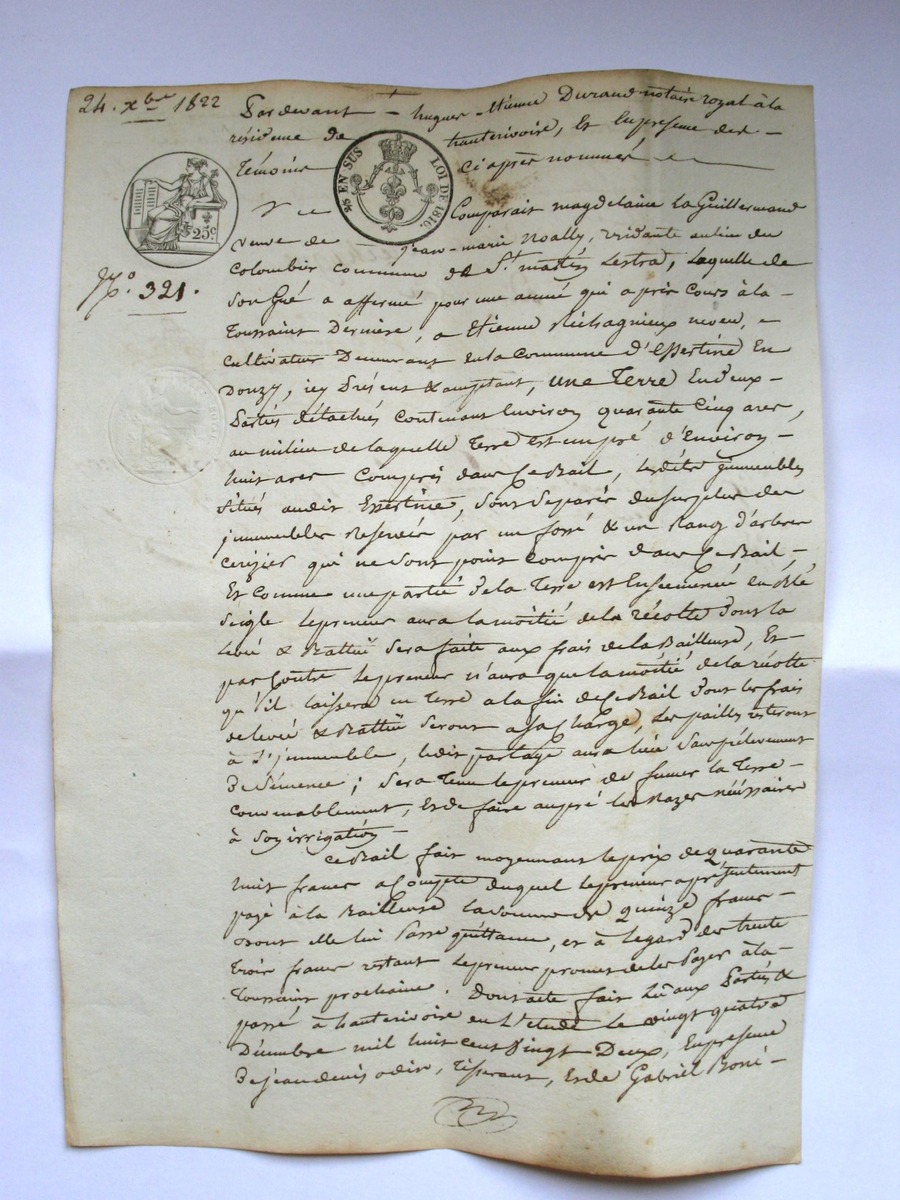 24. xbre 1822
Pardevant hugues Etienne Durand notaire royal à la
résidence de hauterivoire, Et En presence des
Témoins Ci après nommés
25 EN SUS LOI DE 1816.
25c
No. 321.
Comparait magdelaine la Guillermand
veuve de jean-marie Noally, residante au lieu du
Colombier Commune de St. martin Lestra, laquelle de
Son Gré a affermé pour une année qui a pris Cours à la
Toussaint Derniere, a Etienne neveu,
Cultivateur Demeurant En la Commune d'Essertine En
Donzy, icy Présent & acceptant, une Terre En deux
Parties détachées Contenant Environ quarante Cinq ares,
au milieu de laquelle Terre Est un pré d'Environ
huit ares Compris dans Ce Bail, lesdits immeubles
Situés audit Essertine, Sont Separés du surplus des
immeubles Reservés par un fossé & un Rang d'arbres
cerisier qui ne Sont point Compris dans Ce Bail
Et Comme une partie de la Terre est Ensemencée en Blé
Seigle le preneur aura la moitié de la récolte dont la
levée & Battue Sera faite aux frais de la Bailleuse, Et
par Contre le preneur n'aura que la moitié de la récolte
qu'il laissera en Terre a la fin de Ce Bail dont les frais
de levée & Battue Seront a Sa Charge, les pailles resteront
à l'immeuble, ledit partage aura lieu Sans prélevement
De Semence; Sera Tenu le preneur de fumer la Terre
Convenablement, Et de faire au pré les Razes nécéssaires
à Son irrigation
Ce Bail fait moyennant le prix de quarante
huit francs a Compte duquel le preneur a présentement
payé à la Bailleuse la Somme de quinze francs
dont elle lui Passe quittance, et à l'egard des trente
trois francs restant le preneur promet de les Payer à la
Toussaint prochaine. Dont acte fait lu aux Parties &
passé à hauterivoire en l'etude le vingt quatre
Décembre mil huit Cent Vingt Deux, En presence
De jean denis odin, Tisserant, Et de Gabriel